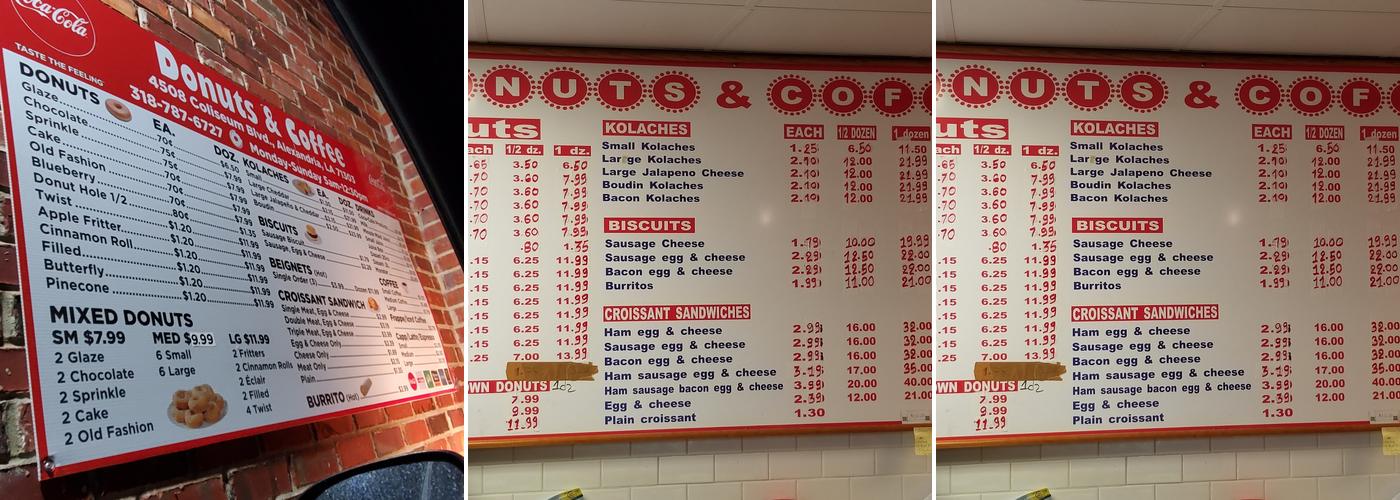 Coca-Cola
TASTE THE FEELING
Donuts & Coffee
4508 Coliseum Blvd., Alexandria, LA 71303
318-787-6727
Monday-Sunday 5am-12:30pm
DONUTS
EA.
DOZ.
Glaze 70¢ $6.50
Chocolate 75¢ $7.99
Sprinkle 75¢ $7.99
Cake 70¢ $7.99
Old Fashion 70¢ $7.99
Blueberry 70¢ $7.99
Donut Hole 1/2 80¢ $1.35
Twist $1.20 $11.99
Apple Fritter $1.20 $11.99
Cinnamon Roll $1.20 $11.99
Filled $1.20 $11.99
Butterfly $1.20 $11.99
Pinecone $1.20 $11.99
MIXED DONUTS
SM $7.99 MED $9.99 LG $11.99
2 Glaze
2 Chocolate
2 Sprinkle
2 Cake
2 Old Fashion
6 Small
6 Large
2 Fritters
2 Cinnamon Rolls
2 Éclair
2 Filled
4 Twist
KOLACHES EA. DOZ.
Small
Large Cheddar
Large Jalapeño & Cheddar
Boudin
BISCUITS
Sausage Biscuit
Sausage, Egg & Cheese
BEIGNETS (Hot)
Single Order (3)
CROISSANT SANDWICH
Single Meat, Egg & Cheese
Double Meat, Egg & Cheese
Triple Meat, Egg & Cheese
Egg & Cheese Only
Cheese Only
Meat Only
Plain
BURRITO (Hot)
DRINKS
COFFEE
Small Coffee
Medium Coffee
NUTS & COF
uts
ach 1/2 dz. 1 dz.
.65 3.50 6.50
.70 3.60 7.99
.70 3.60 7.99
.70 3.60 7.99
3.60 7.99
.70 3.60 7.99
.80 1.35
.15 6.25 11.99
.15 6.25 11.99
.15 6.25 11.99
.15 6.25 11.99
.15 6.25 11.99
.15 6.25 11.99
.25 7.00 13.99
WN DONUTS 1dz
7.99
9.99
11.99
KOLACHES EACH 1/2 DOZEN 1 dozen
Small Kolaches 1.25 6.50 11.50
Large Kolaches 2.10 12.00 21.99
Large Jalapeno Cheese 2.10 12.00 21.99
Boudin Kolaches 2.10 12.00 21.99
Bacon Kolaches 2.10 12.00 21.99
BISCUITS
Sausage Cheese 1.79 10.00 19.99
Sausage egg & cheese 2.29 12.50 22.00
Bacon egg & cheese 2.29 12.50 22.00
Burritos 1.99 11.00 21.00
CROISSANT SANDWICHES
Ham egg & cheese 2.99 16.00 32.00
Sausage egg & cheese 2.99 16.00 32.00
Bacon egg & cheese 2.99 16.00 32.00
Ham sausage egg & cheese 3.19 17.00 35.00
Ham sausage bacon egg & cheese 3.99 20.00 40.00
Egg & cheese 2.39 12.00 21.00
Plain croissant 1.30
NUTS & COF
uts
ach 1/2 dz. 1 dz.
.65 3.50 6.50
.70 3.60 7.99
.70 3.60 7.99
.70 3.60 7.99
3.60 7.99
.70 3.60 7.99
.80 1.35
.15 6.25 11.99
.15 6.25 11.99
.15 6.25 11.99
.15 6.25 11.99
.15 6.25 11.99
.15 6.25 11.99
.25 7.00 13.99
WN DONUTS 1dz
7.99
9.99
11.99
KOLACHES EACH 1/2 DOZEN 1 dozen
Small Kolaches 1.25 6.50 11.50
Large Kolaches 2.10 12.00 21.99
Large Jalapeno Cheese 2.10 12.00 21.99
Boudin Kolaches 2.10 12.00 21.99
Bacon Kolaches 2.10 12.00 21.99
BISCUITS
Sausage Cheese 1.79 10.00 19.99
Sausage egg & cheese 2.29 12.50 22.00
Bacon egg & cheese 2.29 12.50 22.00
Burritos 1.99 11.00 21.00
CROISSANT SANDWICHES
Ham egg & cheese 2.99 16.00 32.00
Sausage egg & cheese 2.99 16.00 32.00
Bacon egg & cheese 2.99 16.00 32.00
Ham sausage egg & cheese 3.19 17.00 35.00
Ham sausage bacon egg & cheese 3.99 20.00 40.00
Egg & cheese 2.39 12.00 21.00
Plain croissant 1.30